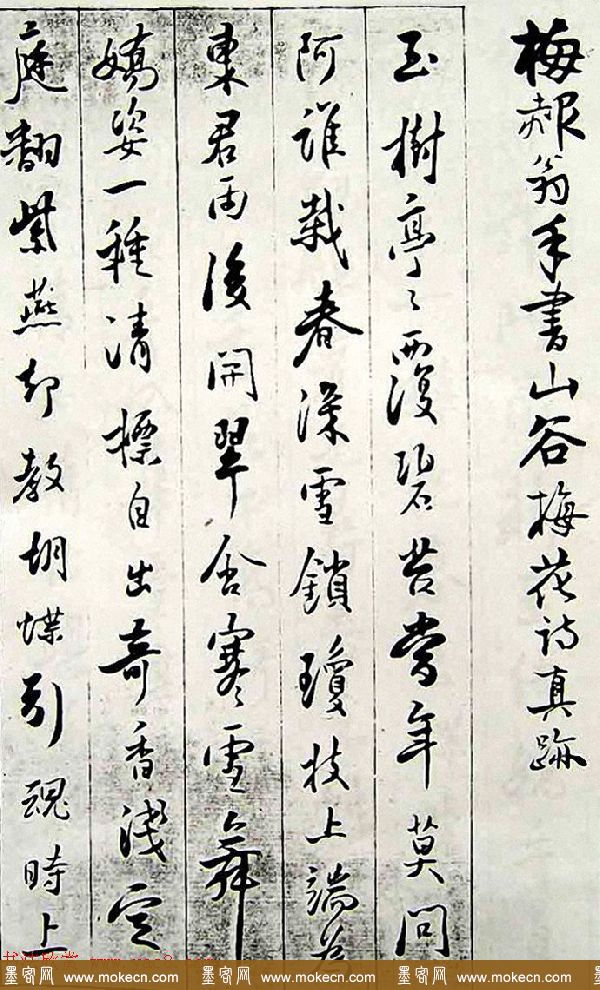 梅赧翁手書山谷梅花诗真跡
玉樹亭々覆碧苔當年莫問
阿誰栽春深雪鎖瓊枝上端為
東君雨後開翠含寒雪舞
嬌姿一種清標自出奇香淺空
庭翻紫燕却教胡蝶引魂時上
墨客网 www.mokecn.com 墨客网 www.mokecn.com 墨客网 www.mokecn.com